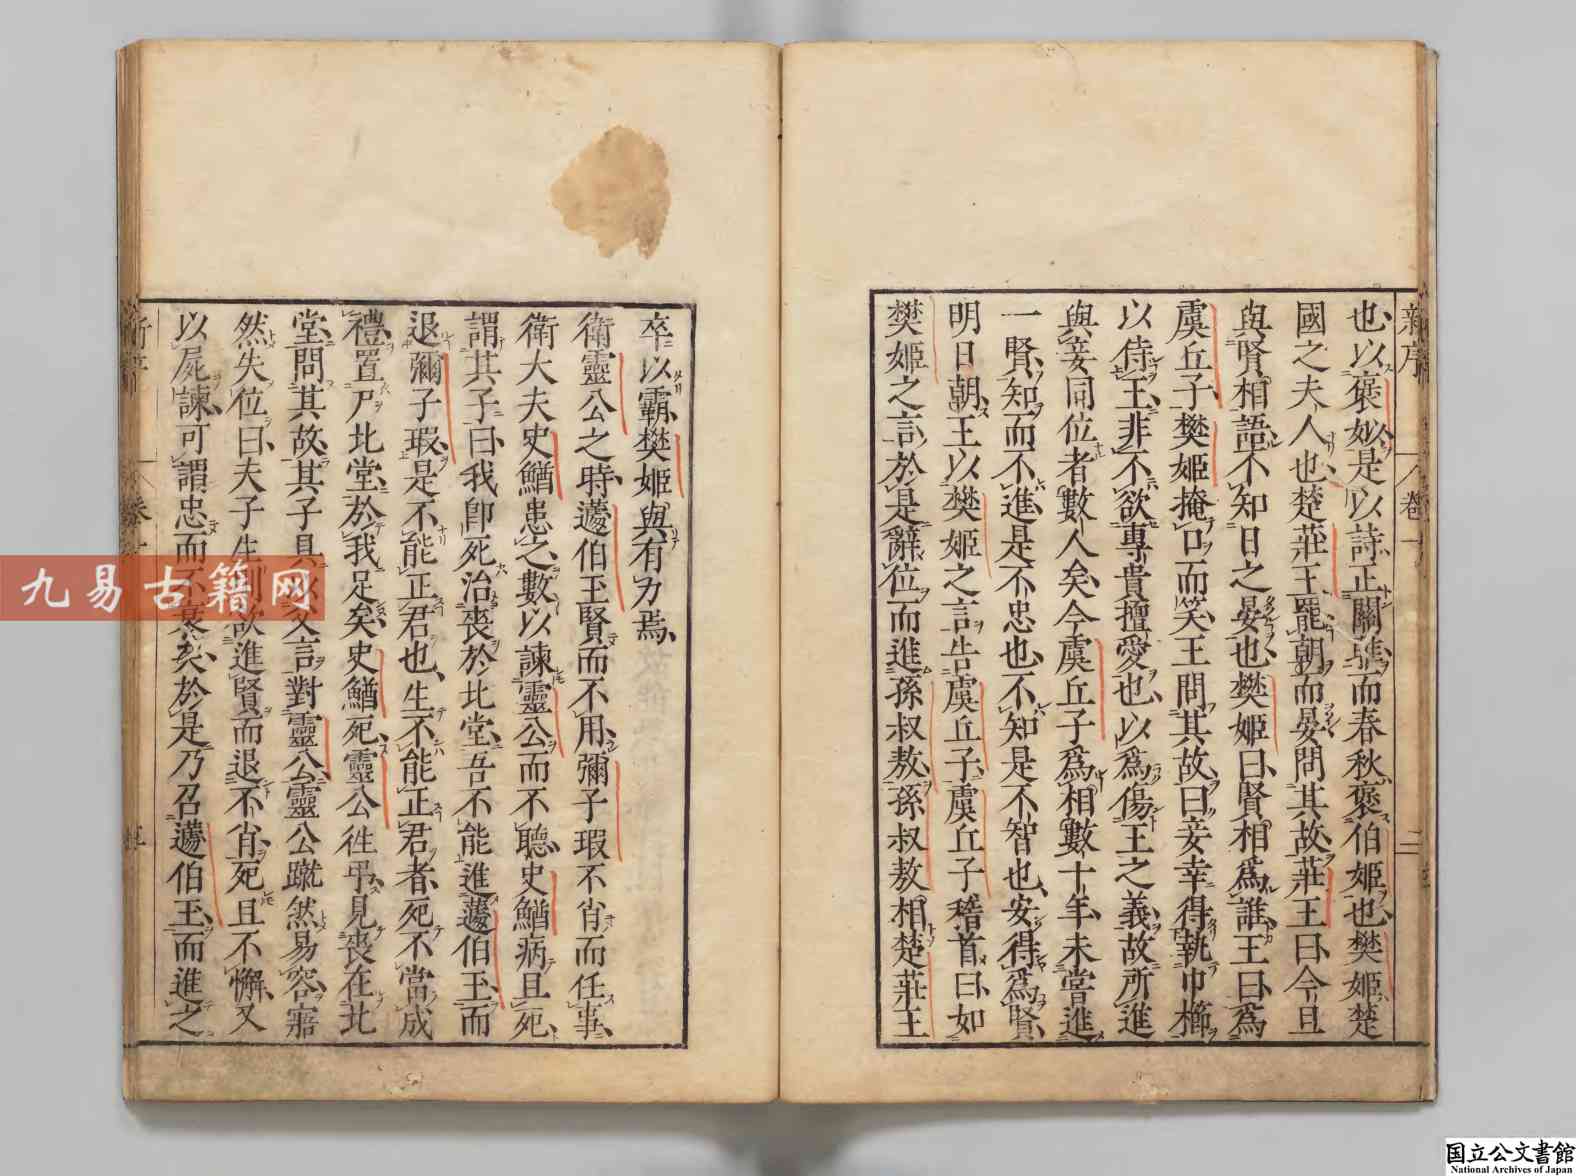 新序 卷一 二
也以褒姒是以詩正關雎而春秋褒伯姬也樊姬楚
國之夫人也楚莊王罷朝而晏問其故莊王曰今且
與賢相語不知日之晏也樊姬曰賢相爲誰王曰爲
虞丘子樊姬掩口而笑王問其故曰妾幸得執巾櫛
以侍王非不欲專貴擅愛也以爲傷王之義故所進
與妾同位者數人矣今虞丘子爲相數十年未嘗進
一賢知而不進是不忠也不知是不智也安得爲賢
明日朝王以樊姬之言告虞丘子虞丘子稽首曰如
樊姬之言於是辭位而進孫叔敖孫叔敖相楚莊王
卒以霸樊姬與有力焉
衛靈公之時蘧伯玉賢而不用彌子瑕不肖而任事
衛大夫史鰌患之數以諫靈公而不聽史鰌病且死
謂其子曰我卽死治喪於北堂吾不能進蘧伯玉而
退彌子瑕是不能正君也生不能正君者死不當成
禮置尸北堂於我足矣史鰌死靈公徃弔見喪在北
堂問其故其子具以父言對靈公靈公蹴然易容寤
然失位曰夫子生則欲進賢而退不肖死且不懈又
以屍諫可謂忠而不衰矣於是乃召蘧伯玉而進之
九易古籍网
国立公文書館
National Archives of Japan